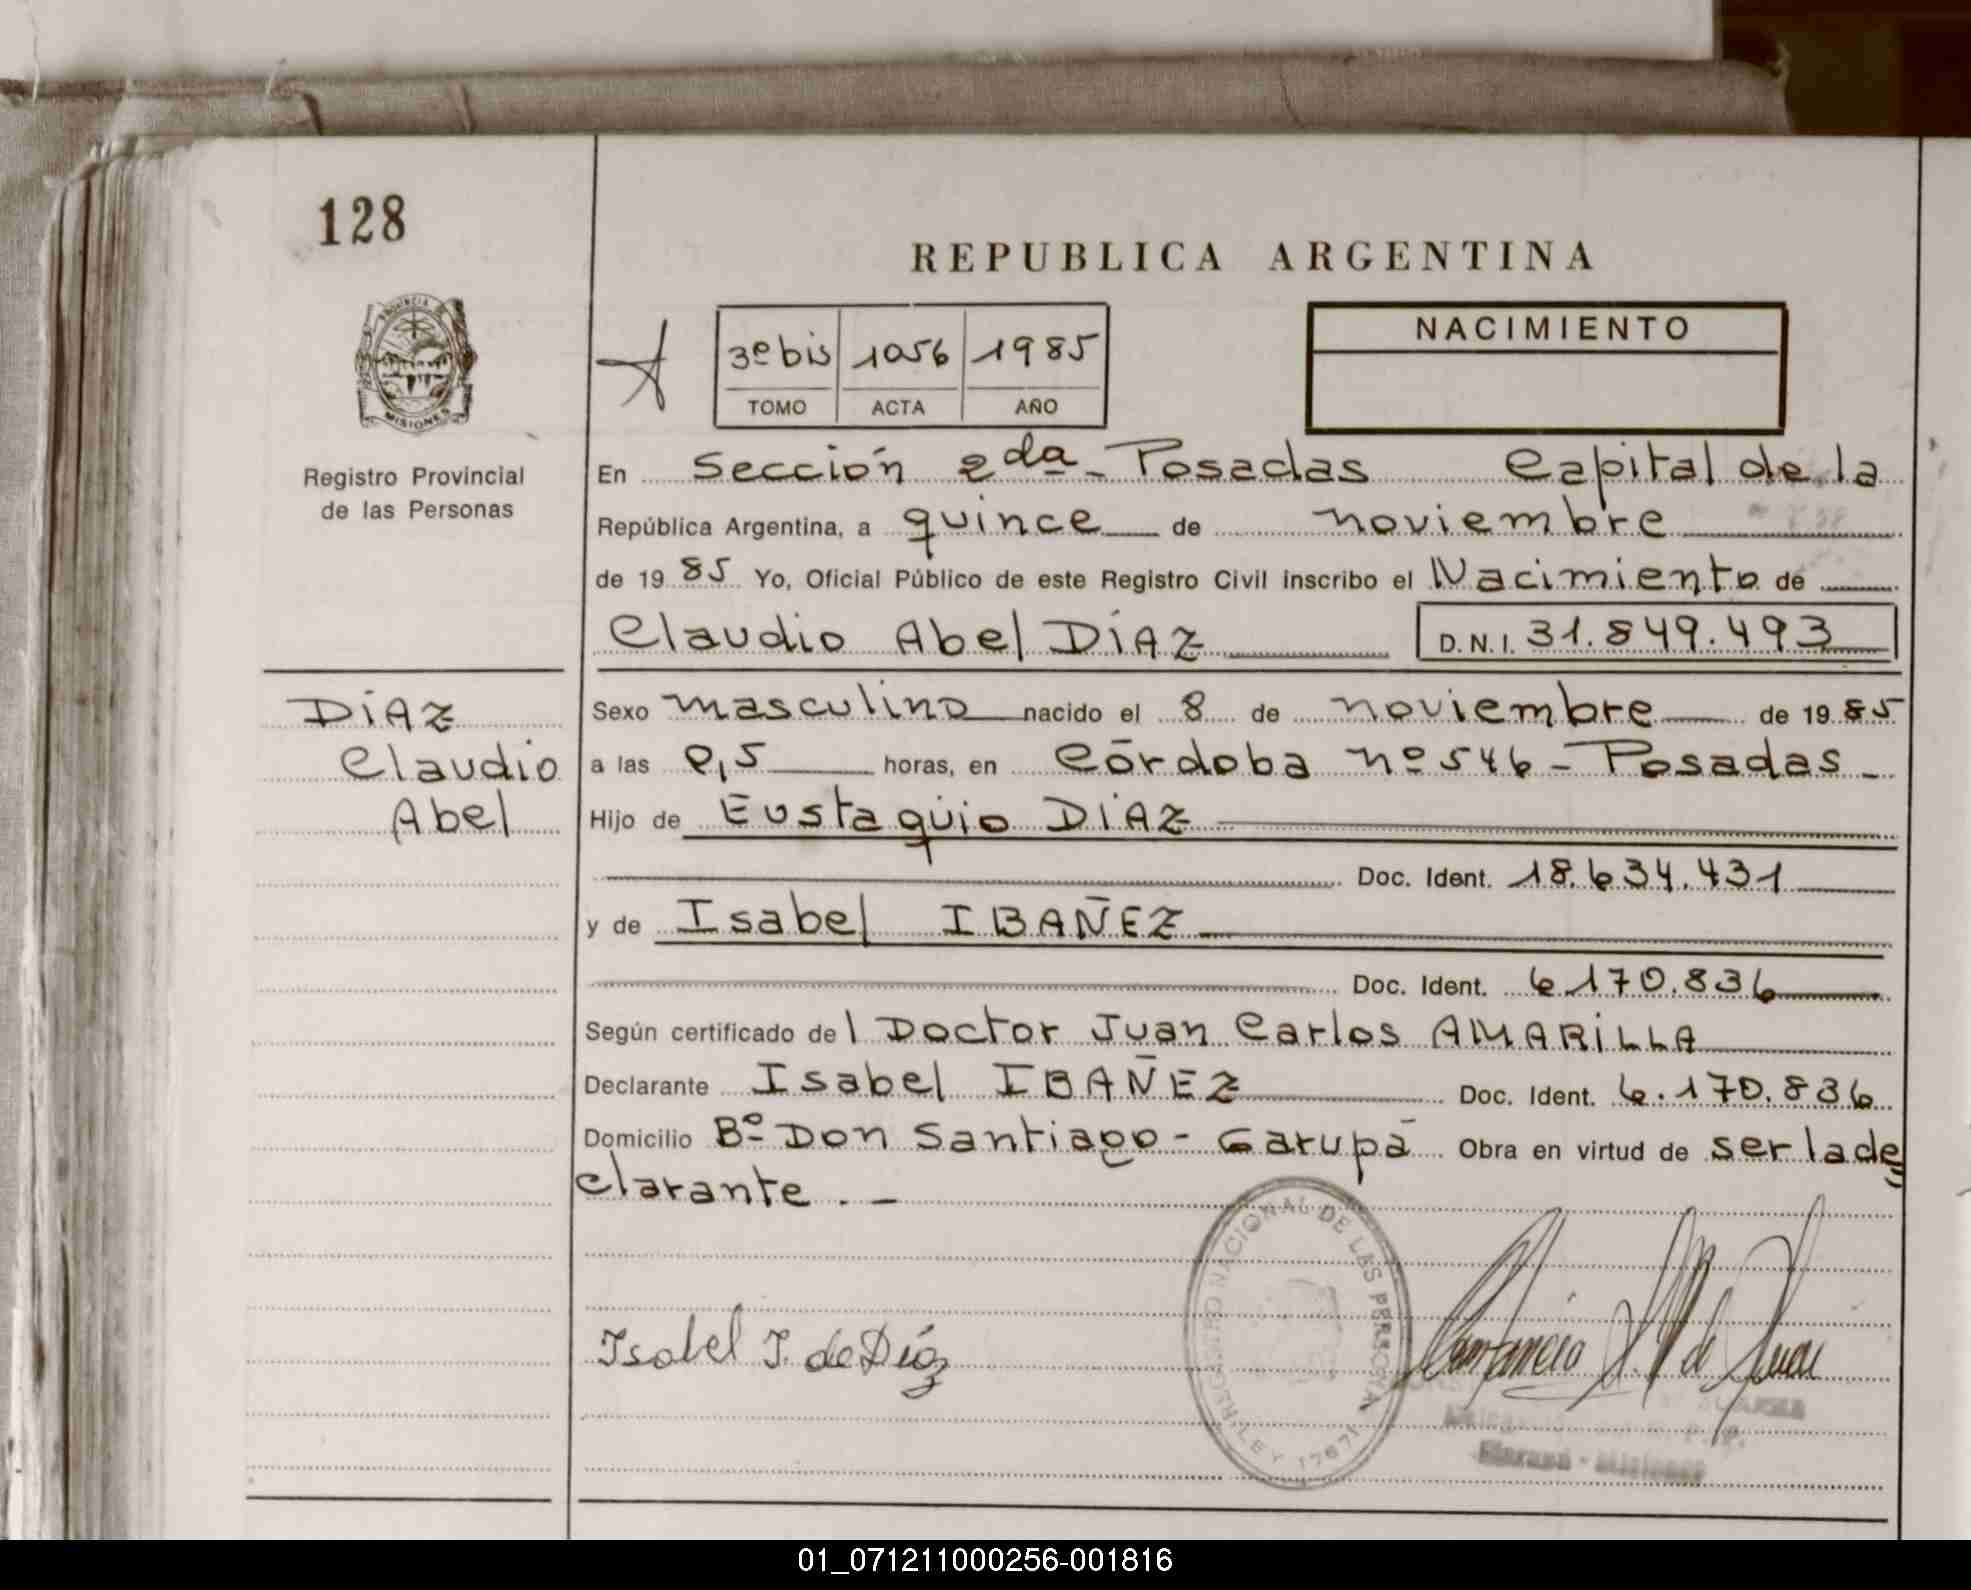 128
REPUBLICA ARGENTINA
PROVINCIA DE
MISIONES
3º bis 1056 1985
TOMO ACTA AÑO
NACIMIENTO
Registro Provincial
de las Personas
En Sección 2da - Posadas Capital de la
República Argentina, a quince de noviembre
de 19 85 Yo, Oficial Público de este Registro Civil inscribo el Nacimiento de
Claudio Abel DÍAZ D.N.I. 31.849.493
DÍAZ
Claudio
Abel
Sexo masculino nacido el 8 de noviembre de 19 85
a las 0,5 horas, en Córdoba nº 546 - Posadas -
Hijo de Eustaquio DÍAZ
Doc. Ident. 18.634.431
y de Isabel IBAÑEZ
Doc. Ident. 6.170.836
Según certificado de l Doctor Juan Carlos AMARILLA
Declarante Isabel IBAÑEZ Doc. Ident. 6.170.836
Domicilio Bº Don Santiago - Garupá Obra en virtud de ser la de
clarante . -
REGISTRO NACIONAL DE LAS PERSONAS
LEY 17671
Isabel I. de Díaz
Misiones
01_071211000256-001816